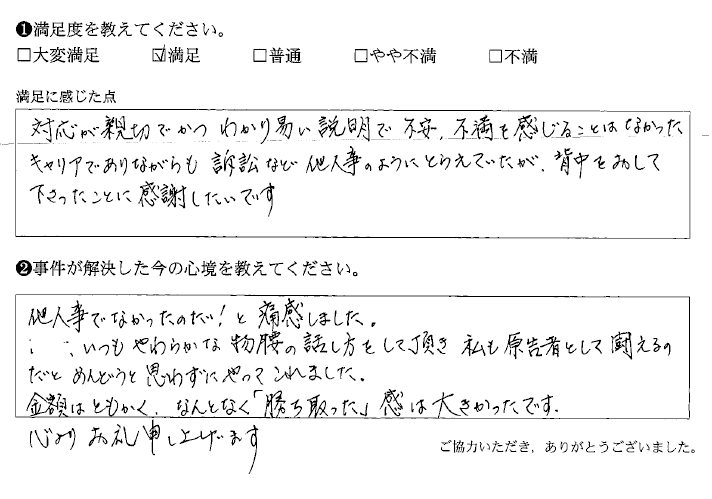 ❶満足度を教えてください。
□大変満足 ☑満足 □普通 □やや不満 □不満
満足に感じた点
対応が親切でかつ わかり易い説明で 不安、不満を感じることはなかった
キャリアでありながらも 訴訟など 他人事のようにとらえていたが、背中をおして
下さったことに感謝したいです
❷事件が解決した今の心境を教えてください。
他人事でなかったのだ!と 痛感しました。
いつも やわらかな 物腰の話し方をして頂き 私も原告者として闘えるの
だと めんどうと思わずにやってこれました。
金額はともかく、なんとなく「勝ち取った」感は大きかったです。
心より お礼申し上げます
ご協力いただき、ありがとうございました。